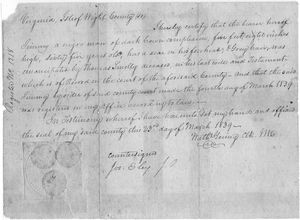 Virginia, Isle of Wight County, to wit
I hereby certify that the bearer hereof
Jimmy a negro man of dark brown complexion, five feet eight inches
high, sixty five years old, has a scar in his forehead & Grey hair, was
emancipated by Thomas Smelly deceased, in his last will and testament
which is of record in the court of the aforesaid County - and that the said
Jimmy by order of said county court made the fourth day of March 1839
was registered in my office according to law -
In testimony whereof I have hereunto set my hand and affixed
the seal of my said county this 23rd day of March 1839 -
Young Ck.
countersigned
Jos.
Register No.